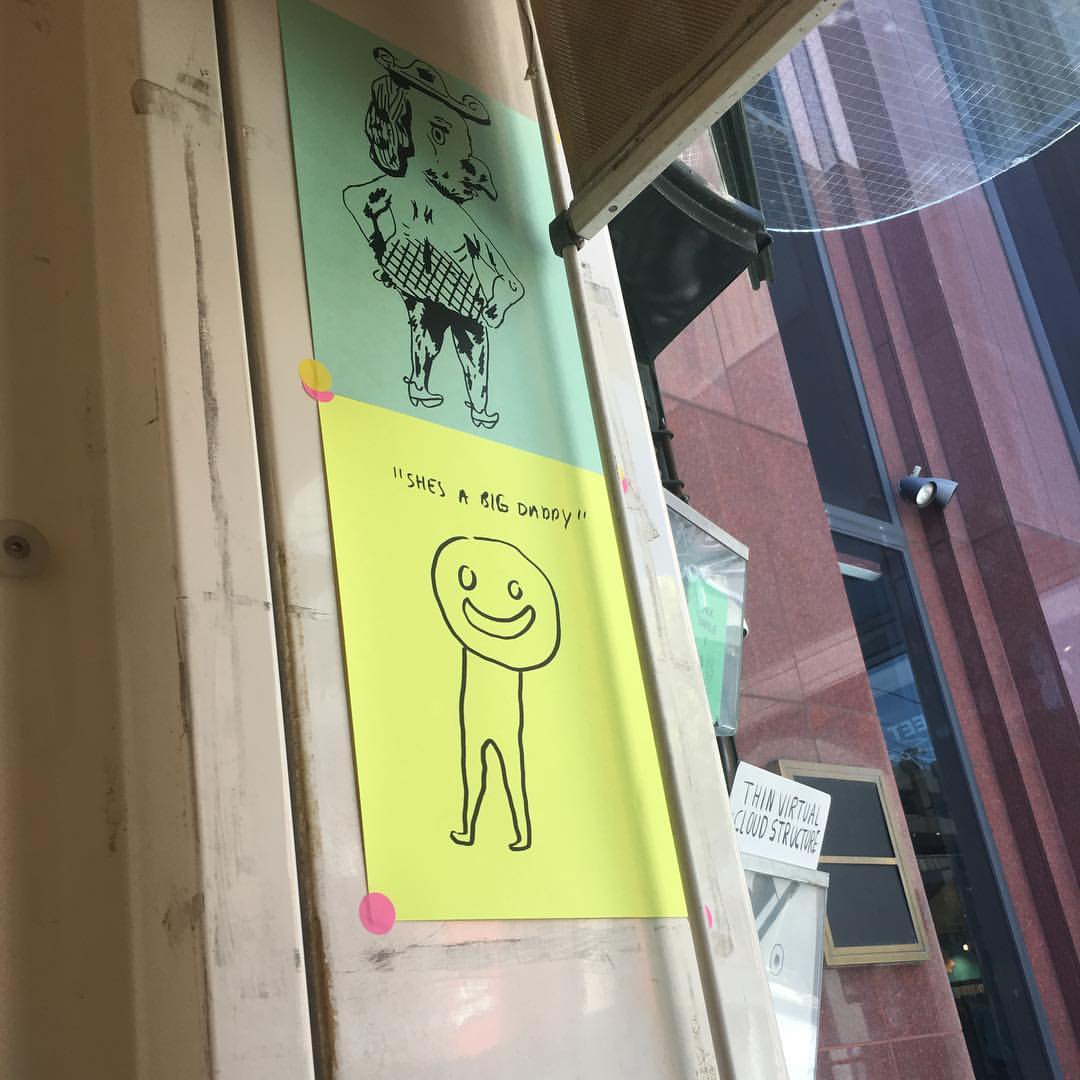 "SHES A BIG DADDY"
THIN VIRTUAL
CLOUD STRUCTURE